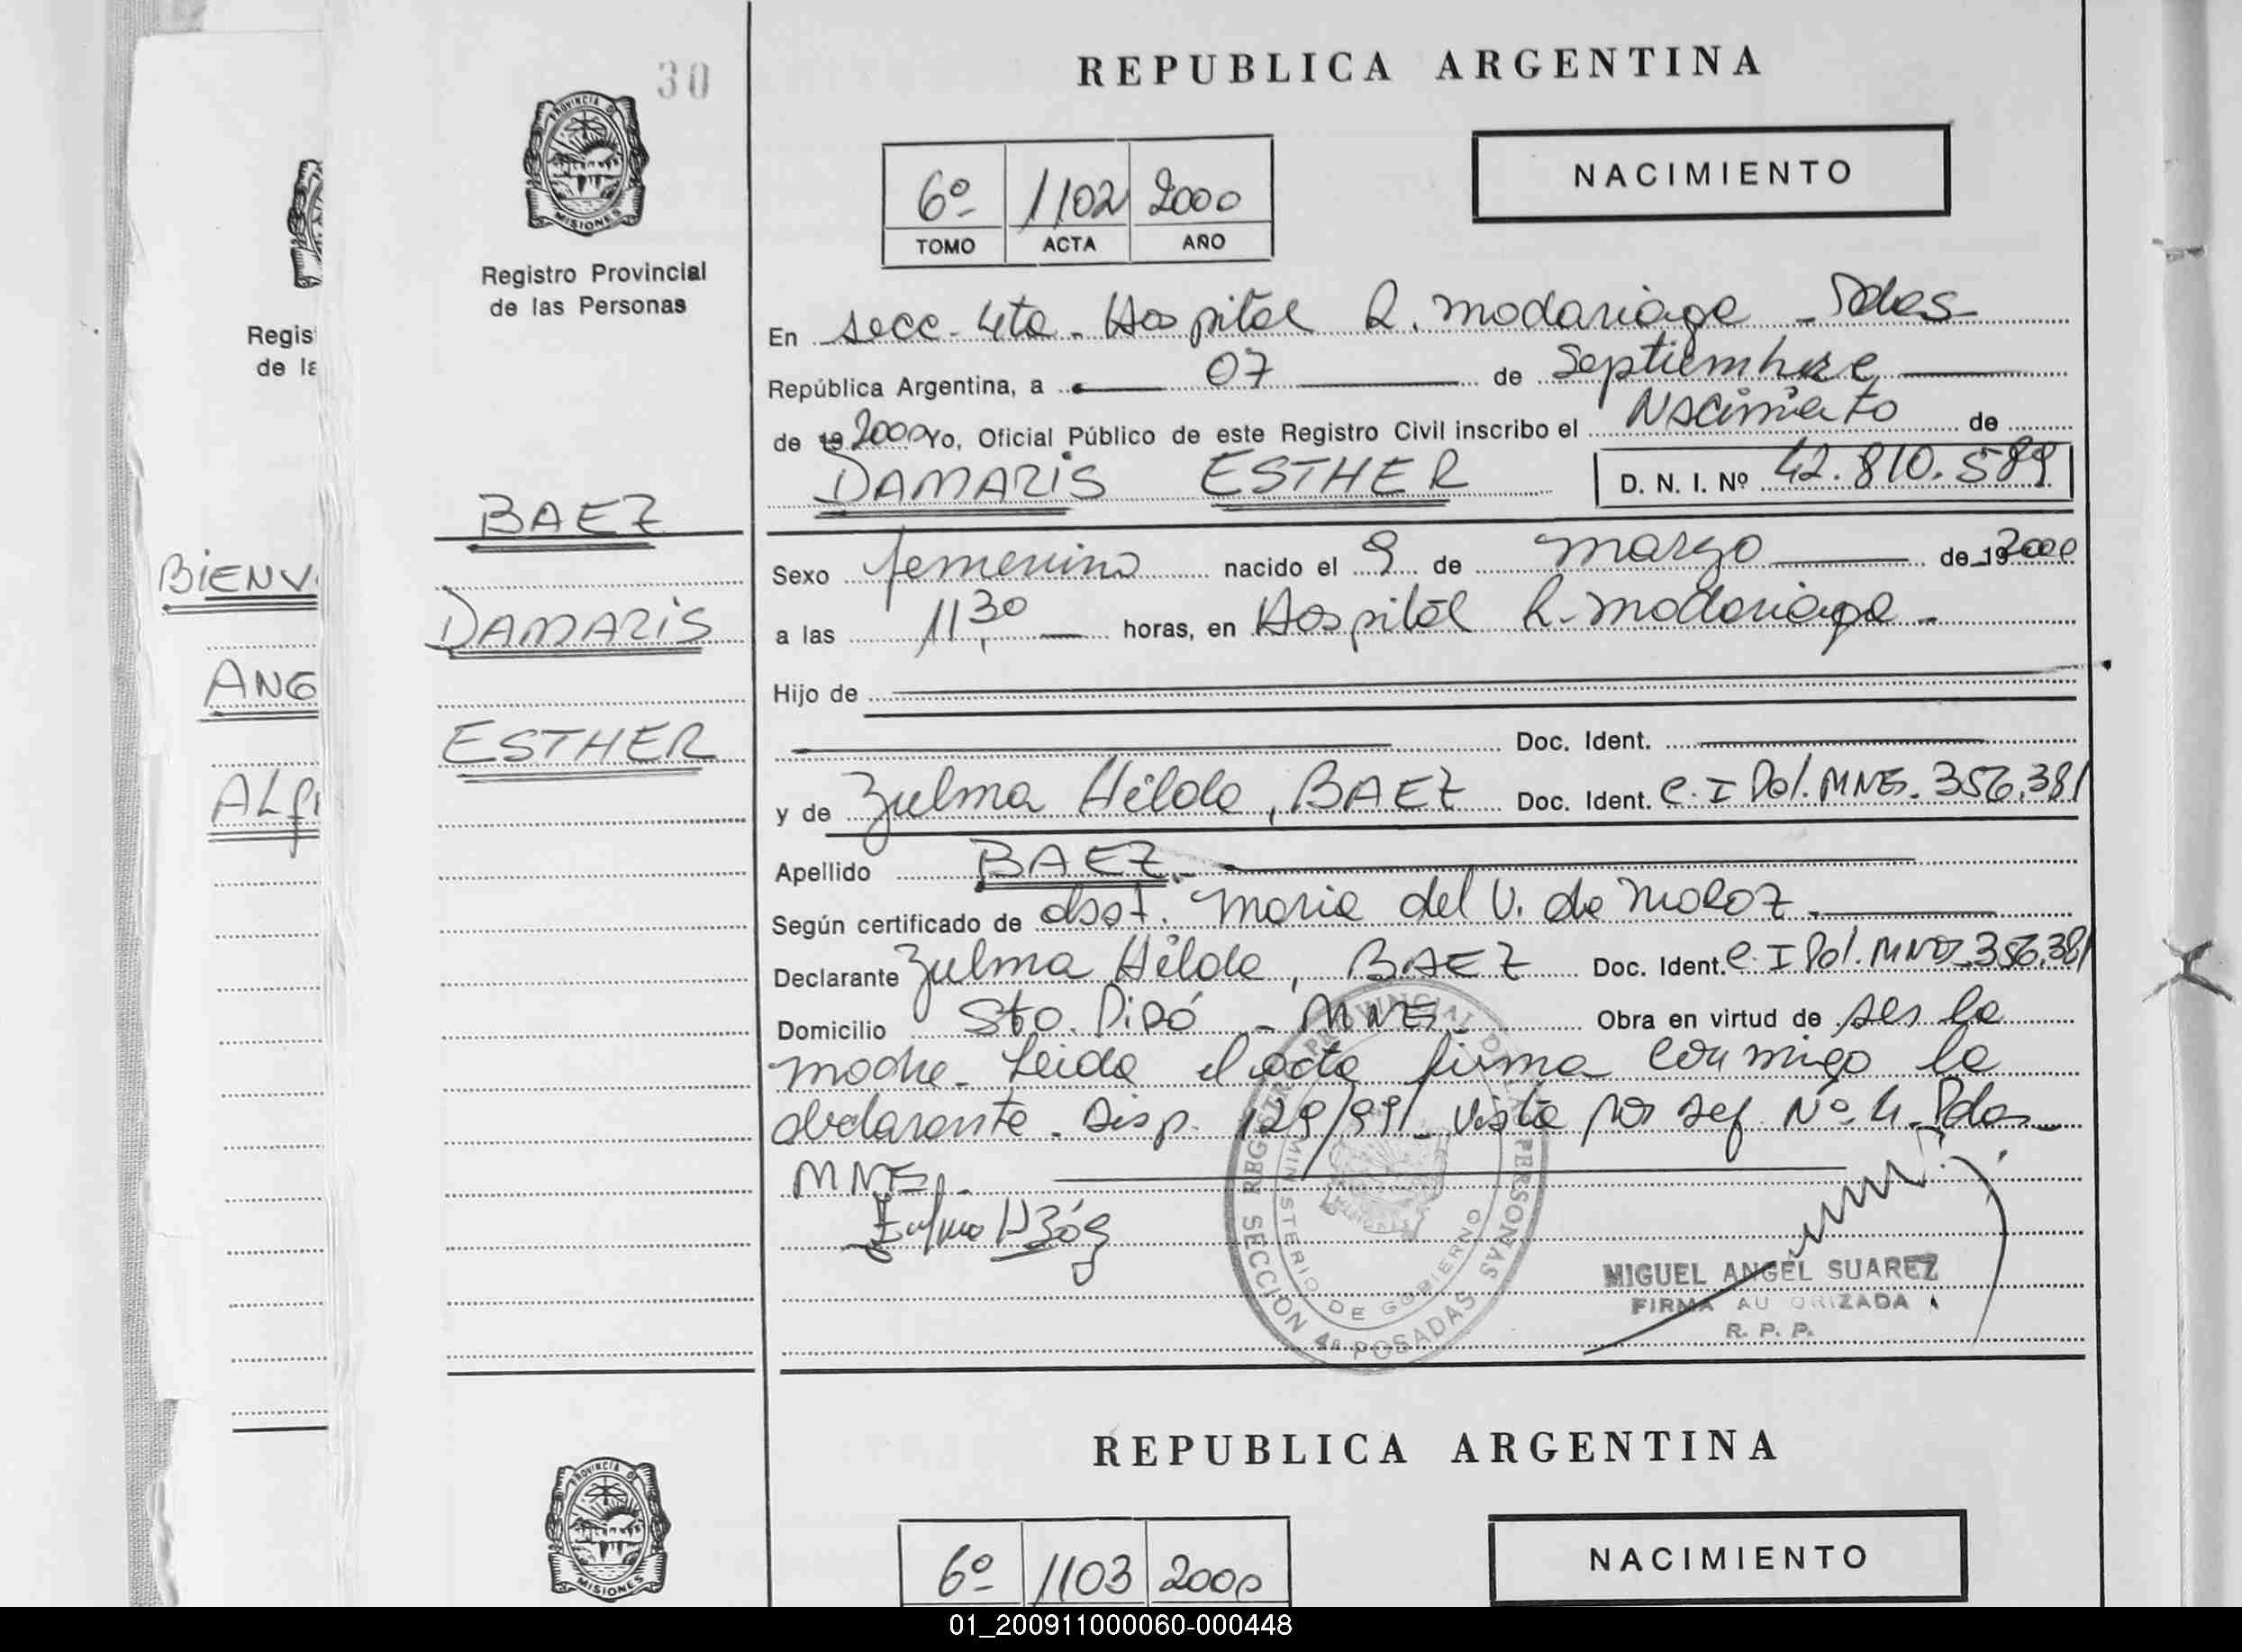 30
PROVINCIA DE
MISIONES
Registro Provincial
de las Personas
Regis
de la
BIENV
ANG
ALF
BAEZ
DAMARIS
ESTHER
REPUBLICA ARGENTINA
6º 1102 2000
TOMO ACTA AÑO
NACIMIENTO
En secc. 4ta. Hospital R. Madariaga - Pdas
República Argentina, a 07 de Septiembre
de 19 2000 Yo, Oficial Público de este Registro Civil inscribo el Nacimiento de
DAMARIS ESTHER D. N. I. Nº 42.810.589
Sexo femenino nacido el 9 de marzo de 19 2000
a las 11,30 horas, en Hospital R. Madariaga -
Hijo de
Doc. Ident.
y de Zulma Hilda, BAEZ Doc. Ident. C. I Pol. MNES. 356.381
Apellido BAEZ.-
Según certificado de obst. Maria del V. de
Declarante Zulma Hilda, BAEZ Doc. Ident. C. I Pol. MNES. 356.381
Domicilio Sto. Pipó - MNES - Obra en virtud de ser la
madre. Leida el acta firma conmigo la
declarante. Disp. 129/99/ vista por Nº 4. Pdas
MNES -
REGISTRO PROVINCIAL DE LAS PERSONAS
MINISTERIO DE GOBIERNO
SECCION 4ª POSADAS
MIGUEL ANGEL SUAREZ
FIRMA AU ORIZADA
R. P. P.
PROVINCIA DE
MISIONES
REPUBLICA ARGENTINA
6º 1103 2000
NACIMIENTO
01_200911000060-000448